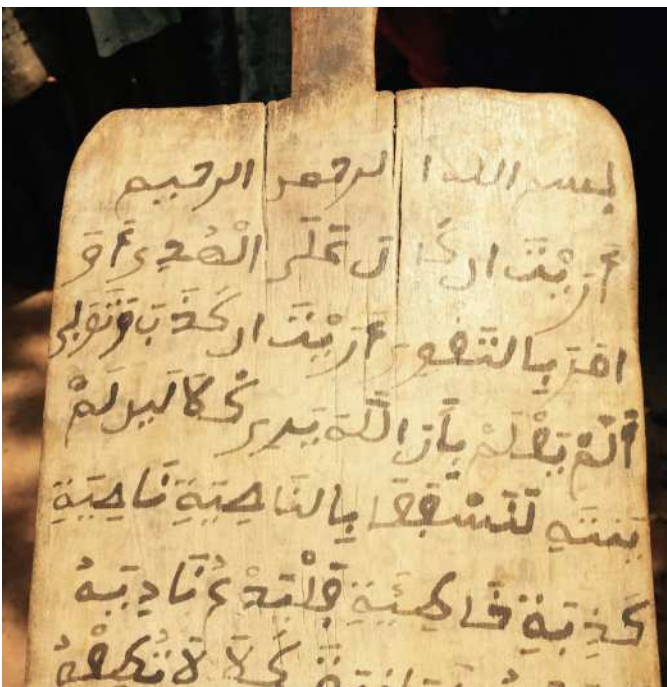 بسم الله الرحمن الرحيم
أَرَيْتَ ان كَانَ عَلَى الْهُدِى أَوَ
امَرَ بِالتَّقْوِى أَرَيْتَ ان كَذَّبَ وَتَوَلِى
أَلَمْ يَعْلَمْ بِأَنَّ اللَّهَ يَرِى كَلَّا لَين لَمْ
يَنتَهِ لَنَسْفَعَا بِالنَّاصِيَةِ نَاصِيَةٍ
كَذِبَةٍ خَاطِئَةٍ فَلْيَدْعُ نَادِيَهُ
كَلَّا لَا تُطِعْهُ